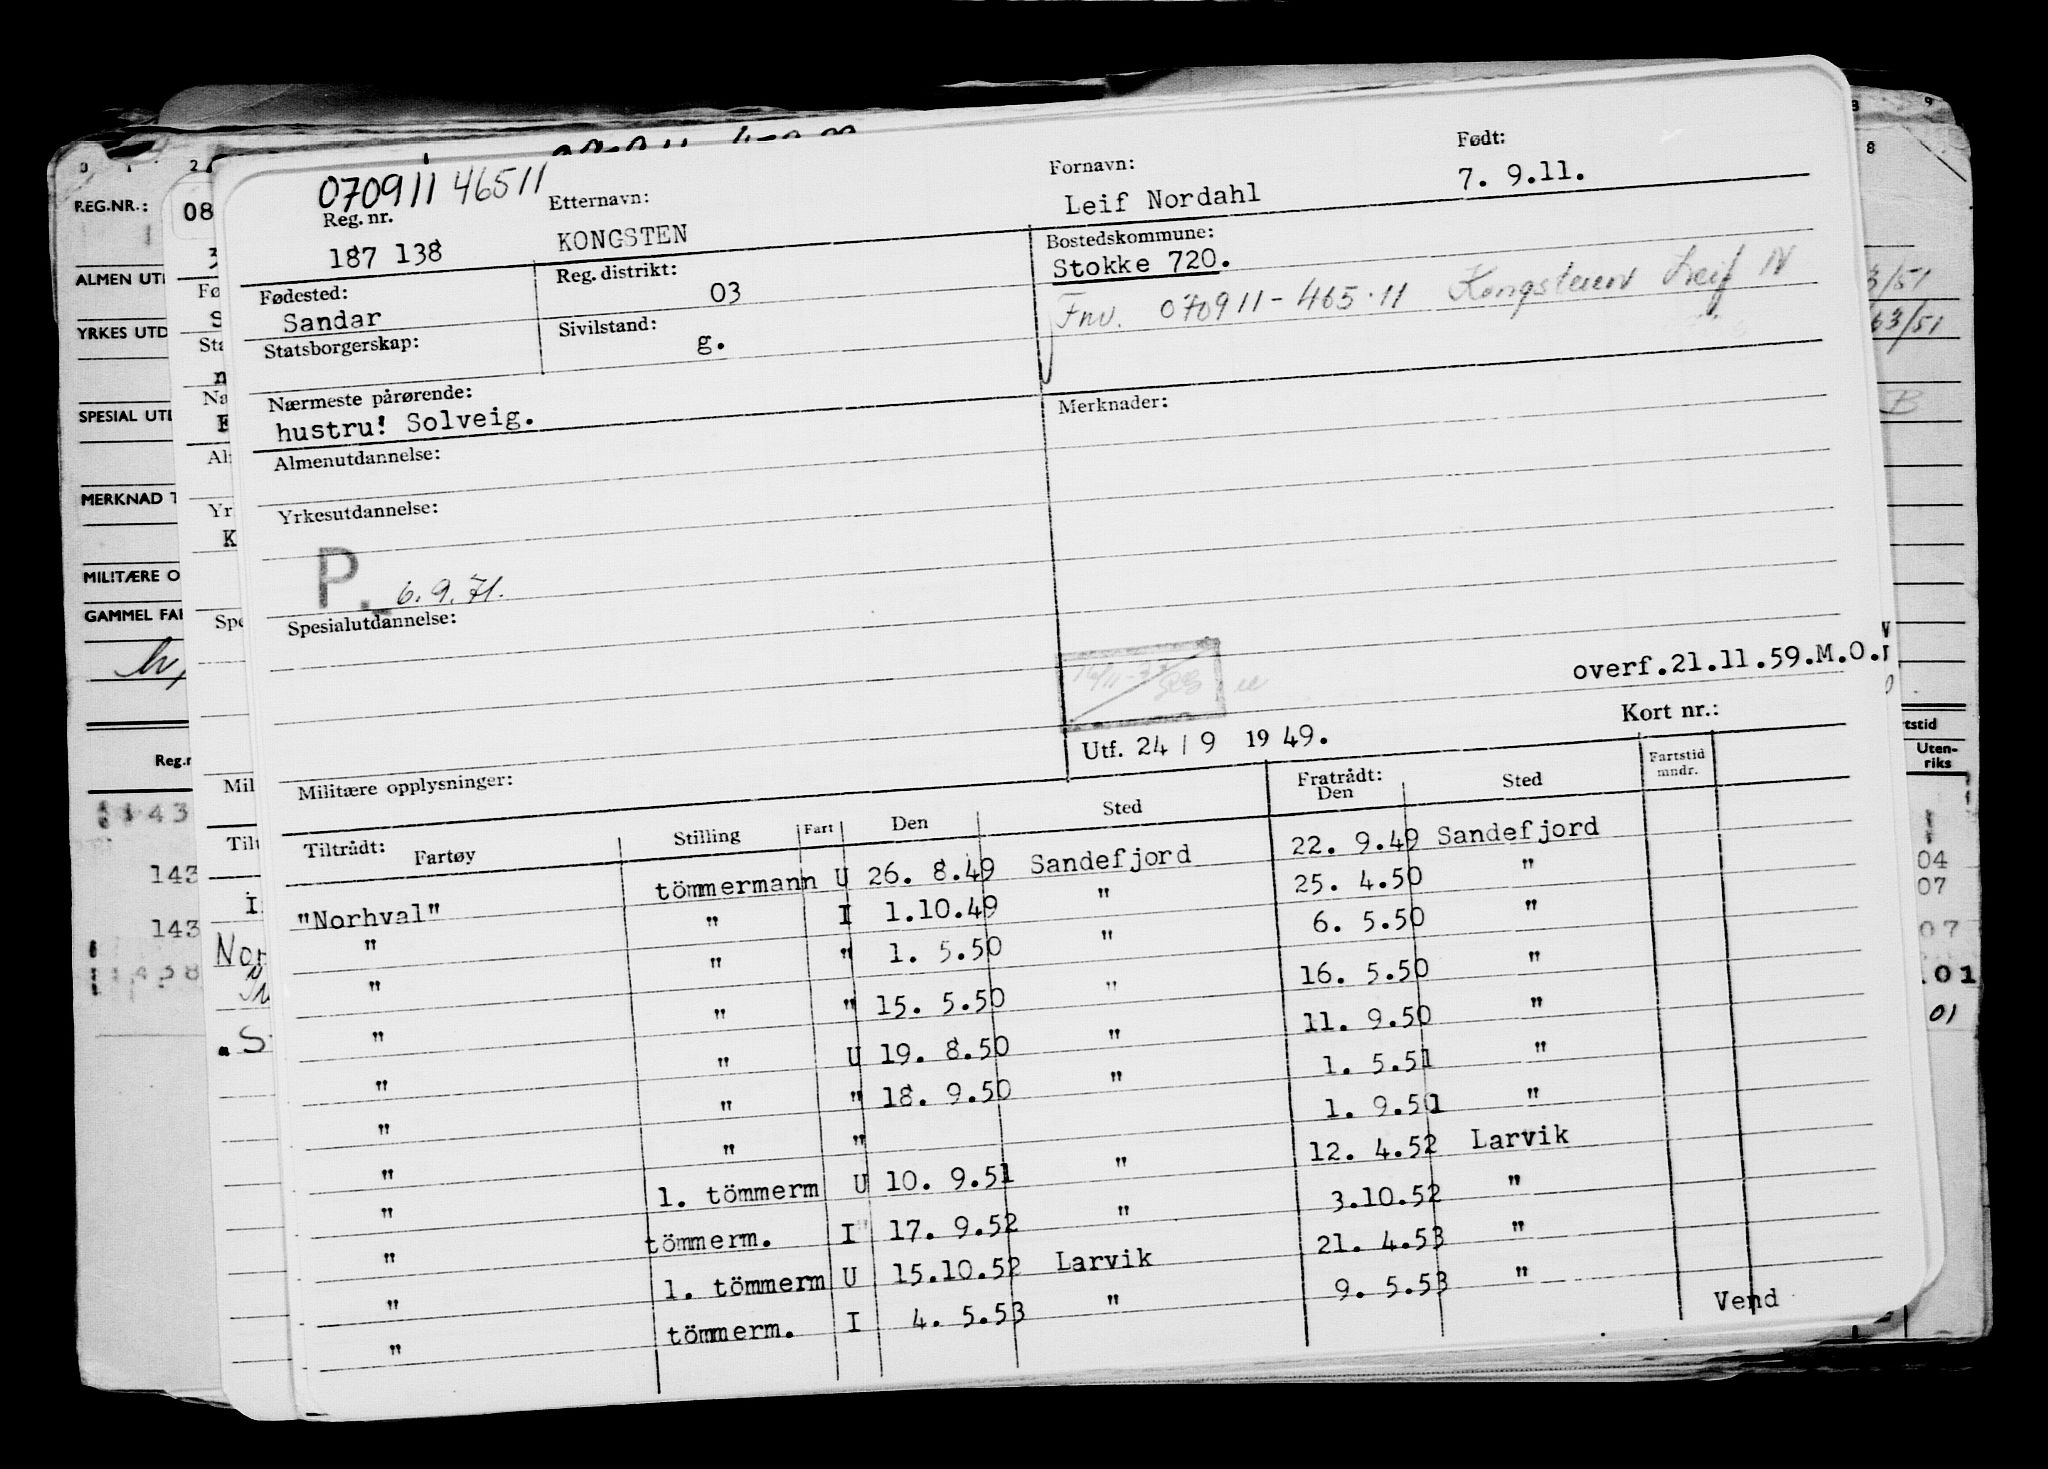 070911 46511
Reg. nr.
187 138
Etternavn:
KONGSTEN
Fornavn:
Leif Nordahl
Født:
7. 9.11.
Fødested:
Sandar
Reg. distrikt:
03
Bostedskommune:
Stokke 720.
Fnv. 070911-465.11 Leif N
Statsborgerskap:
Sivilstand:
g.
Nærmeste pårørende:
hustru! Solveig.
Merknader:
Almenutdannelse:
Yrkesutdannelse:
P. 6.9.71.
Spesialutdannelse:
overf.21.11.59.M.O.
Utf. 24 / 9 19 49.
Kort nr.:
Militære opplysninger:
Tiltrådt: Fartøy Stilling Fart Den Sted Fratrådt: Den Sted Fartstid mndr.
"Norhval" tömmermann U 26. 8.49 Sandefjord 22. 9.49 Sandefjord
" " I 1.10.49 " 25. 4.50 "
" " " 1. 5.50 " 6. 5.50 "
" " " 15. 5.50 " 16. 5.50 "
" " U 19. 8.50 " 11. 9.50 "
" " " 18. 9.50 " 1. 5.51 "
" " " 1. 9.51 "
" 1. tömmerm U 10. 9.51 " 12. 4.52 Larvik
" tömmerm. I 17. 9.52 " 3.10.52 "
" 1. tömmerm U 15.10.52 Larvik 21. 4.53 "
" tömmerm. I 4. 5.53 " 9. 5.53 "
Vend
REG.NR.:
08
ALMEN UT
YRKES UTD
SPESIAL UT
MERKNAD T
MILITÆRE O
GAMMEL FA
Reg.n
143
143
143
438
8
9
3/51
63/51
B
rtstid
Uten-
riks
04
07
07
.01
01